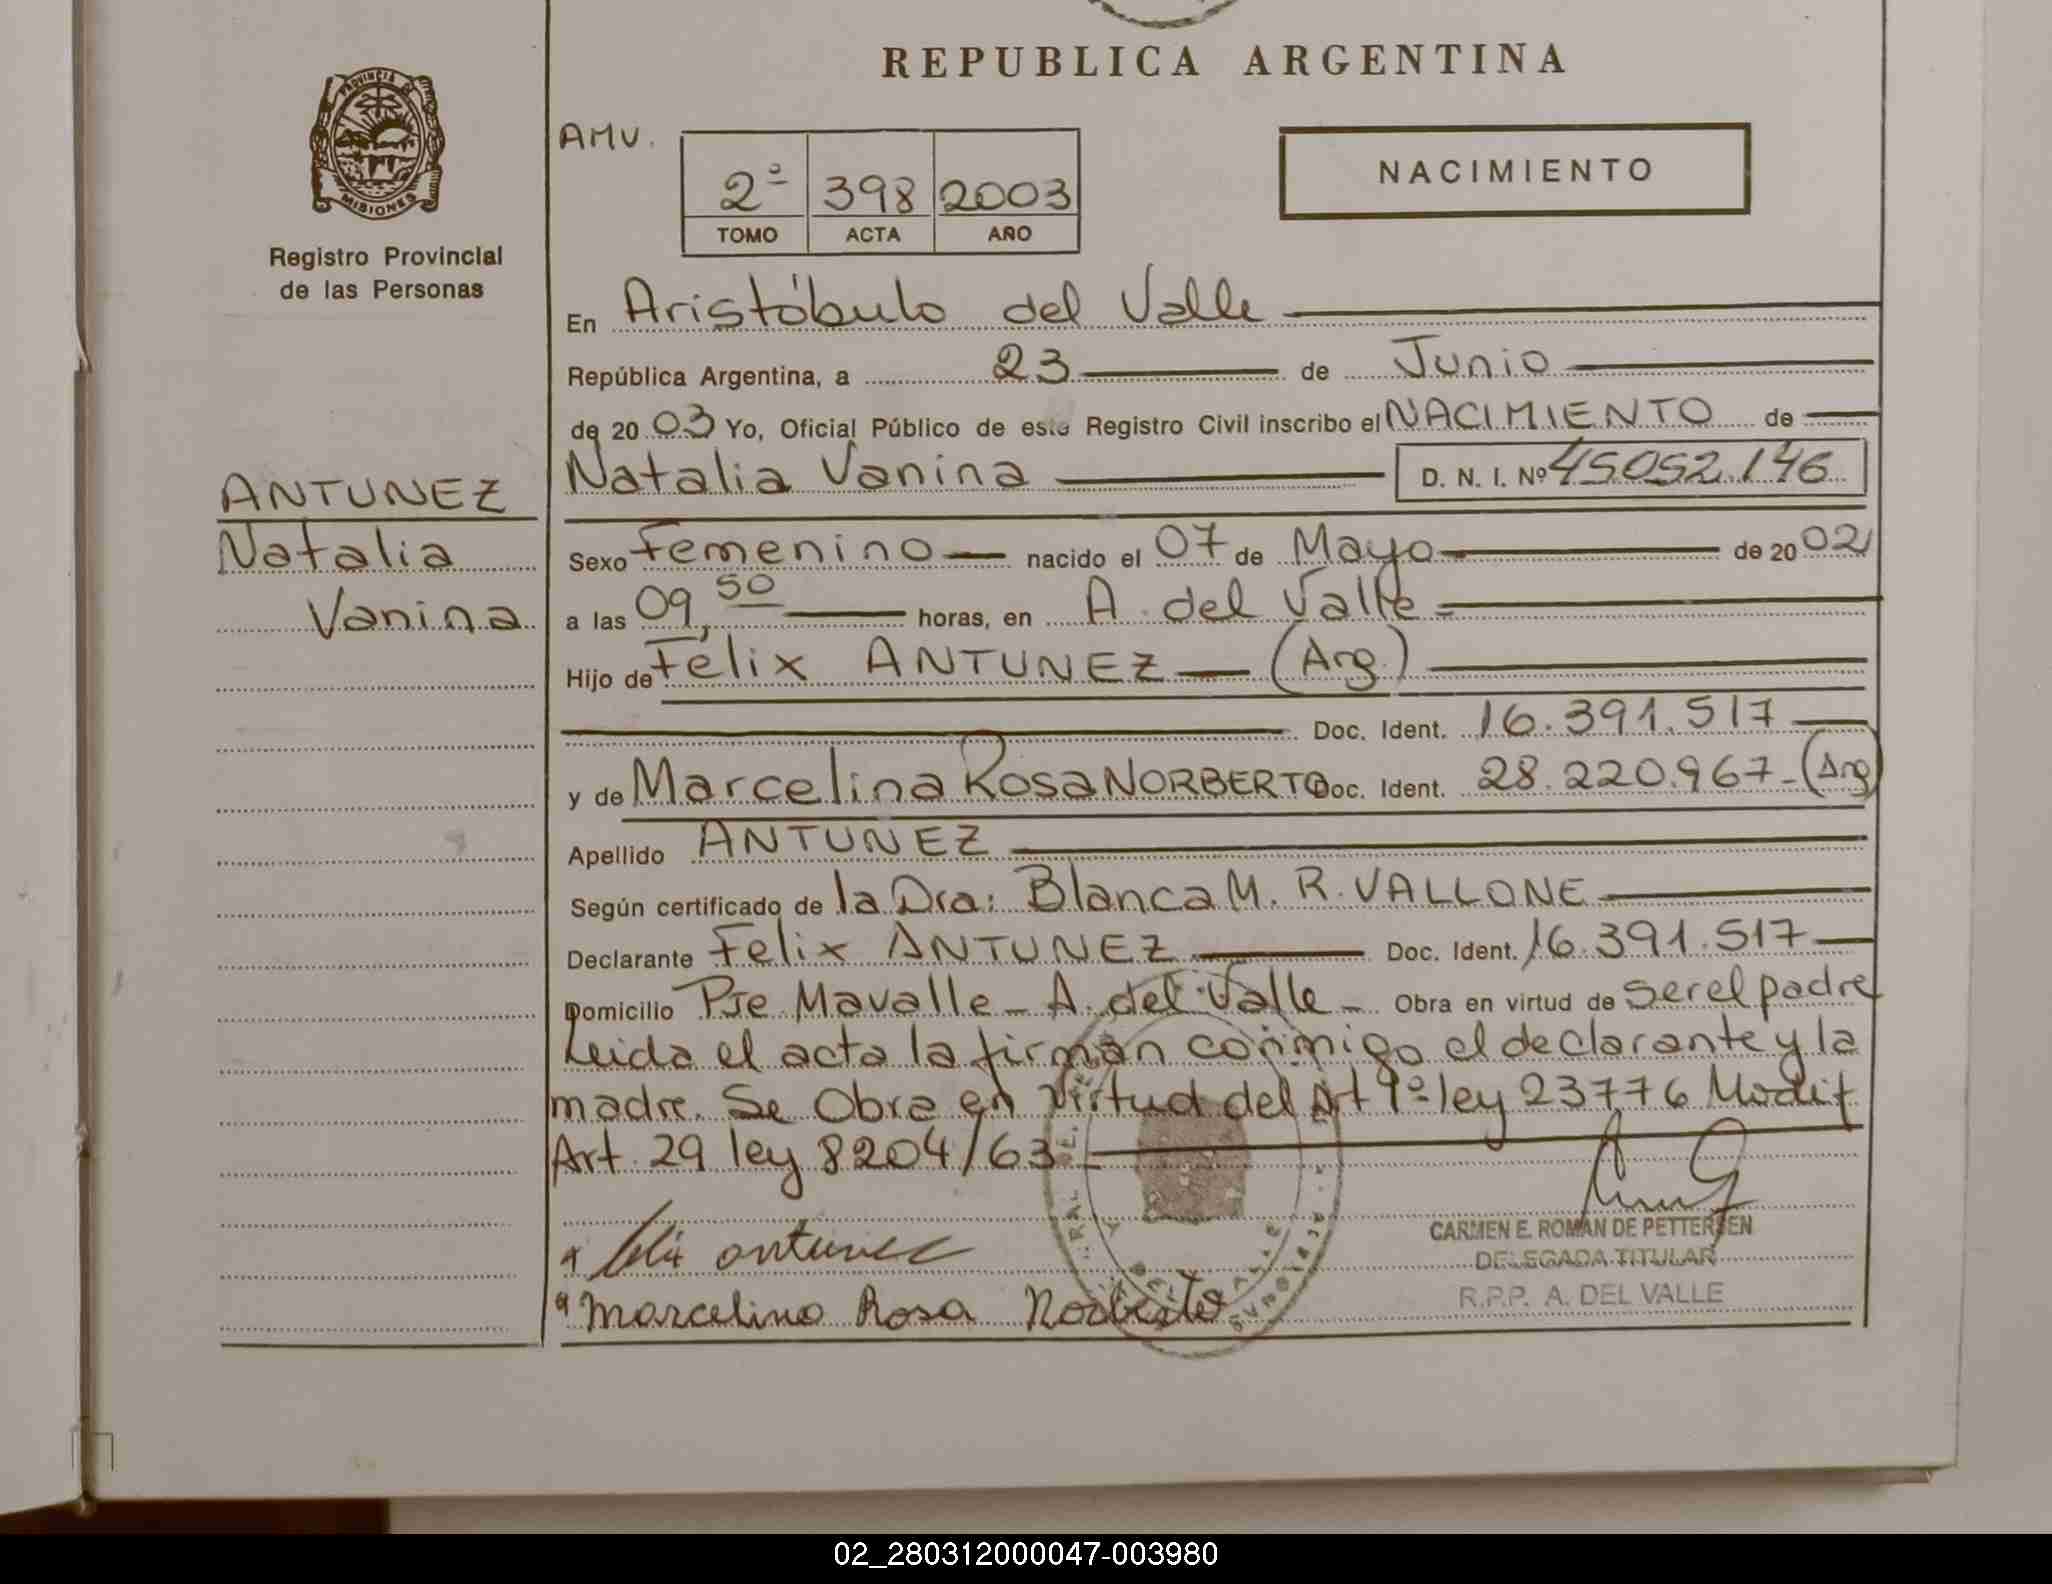 REPUBLICA ARGENTINA
PROVINCIA DE
MISIONES
Registro Provincial
de las Personas
AMV.
2º 398 2003
TOMO ACTA AÑO
NACIMIENTO
En Aristóbulo del Valle
República Argentina, a 23 de Junio
de 20 03 Yo, Oficial Público de este Registro Civil inscribo el NACIMIENTO de
ANTUNEZ
Natalia
Vanina
Natalia Vanina D. N. I. Nº 45.052.146
Sexo Femenino nacido el 07 de Mayo de 20 02
a las 09,50 horas, en A. del Valle
Hijo de Félix ANTUNEZ (Arg.)
Doc. Ident. 16.391.517
y de Marcelina Rosa NORBERTO Doc. Ident. 28.220.967 (Arg)
Apellido ANTUNEZ
Según certificado de la Dra: Blanca M. R. VALLONE
Declarante Felix ANTUNEZ Doc. Ident. 16.391.517
Domicilio Pje Mavalle - A. del Valle - Obra en virtud de ser el padre
Leida el acta la firman conmigo el declarante y la
madre. Se Obra en Virtud del Art 9º ley 23776 Modif
Art. 29 ley 8204/63
antunez
Marcelina Rosa Norberto
CARMEN E. ROMAN DE PETTERSEN
DELEGADA TITULAR
R.P.P. A. DEL VALLE
02_280312000047-003980